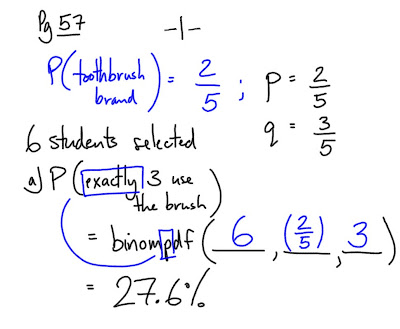 Pg 57
-1-
P(toothbrush brand) = 2/5 ; p = 2/5
q = 3/5
6 students selected
a) P(exactly 3 use the brush)
= binompdf(6, (2/5), 3)
= 27.6%